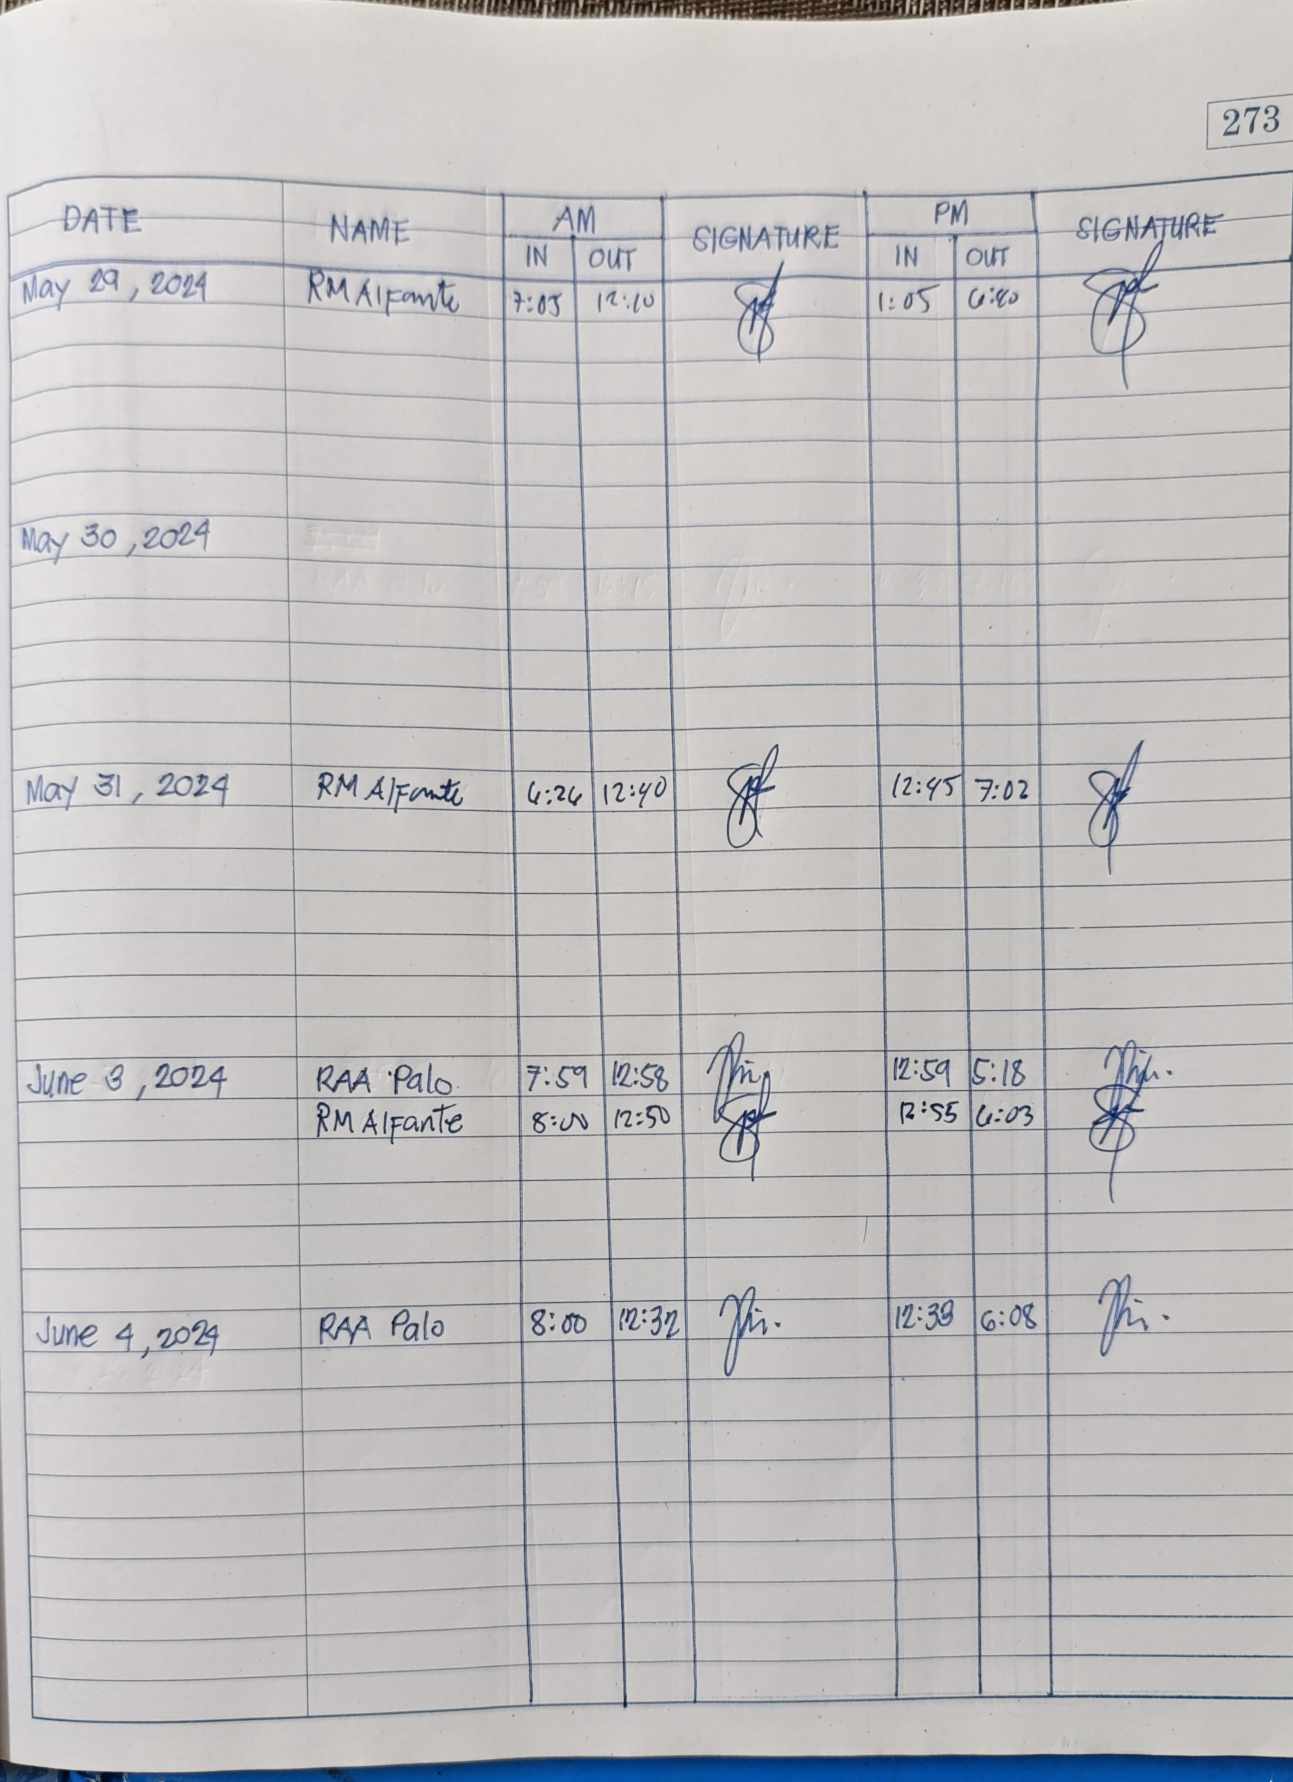 273
DATE NAME AM SIGNATURE PM SIGNATURE
IN OUT IN OUT
May 29, 2024 RM Alfante 7:05 12:10 1:05 6:40
May 30, 2024
May 31, 2024 RM Alfante 6:26 12:40 12:45 7:02
June 3, 2024 RAA Palo 7:59 12:58 12:59 5:18
RM Alfante 8:00 12:50 12:55 6:03
June 4, 2024 RAA Palo 8:00 12:32 12:38 6:08